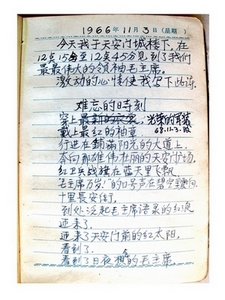 1966年11月3日(星期 )
今天我于天安门城楼下,在
12点15分至12点45分见到了我们
最最伟大的领袖毛主席。
激动的心情使我写下此诗
难忘的时刻
穿上 光荣的军装
68.11.3.
戴上最红的袖章
行进在铺满阳光的大道上,
奔向那雄伟壮丽的天安门广场。
红卫兵战旗在蓝天里飞飘
毛主席万岁!的口号声在
十里长安街,
到处泛起毛主席语录的红浪
迎来了
迎来了天安门前的红太阳,
看到了
看到了日夜想的毛主席